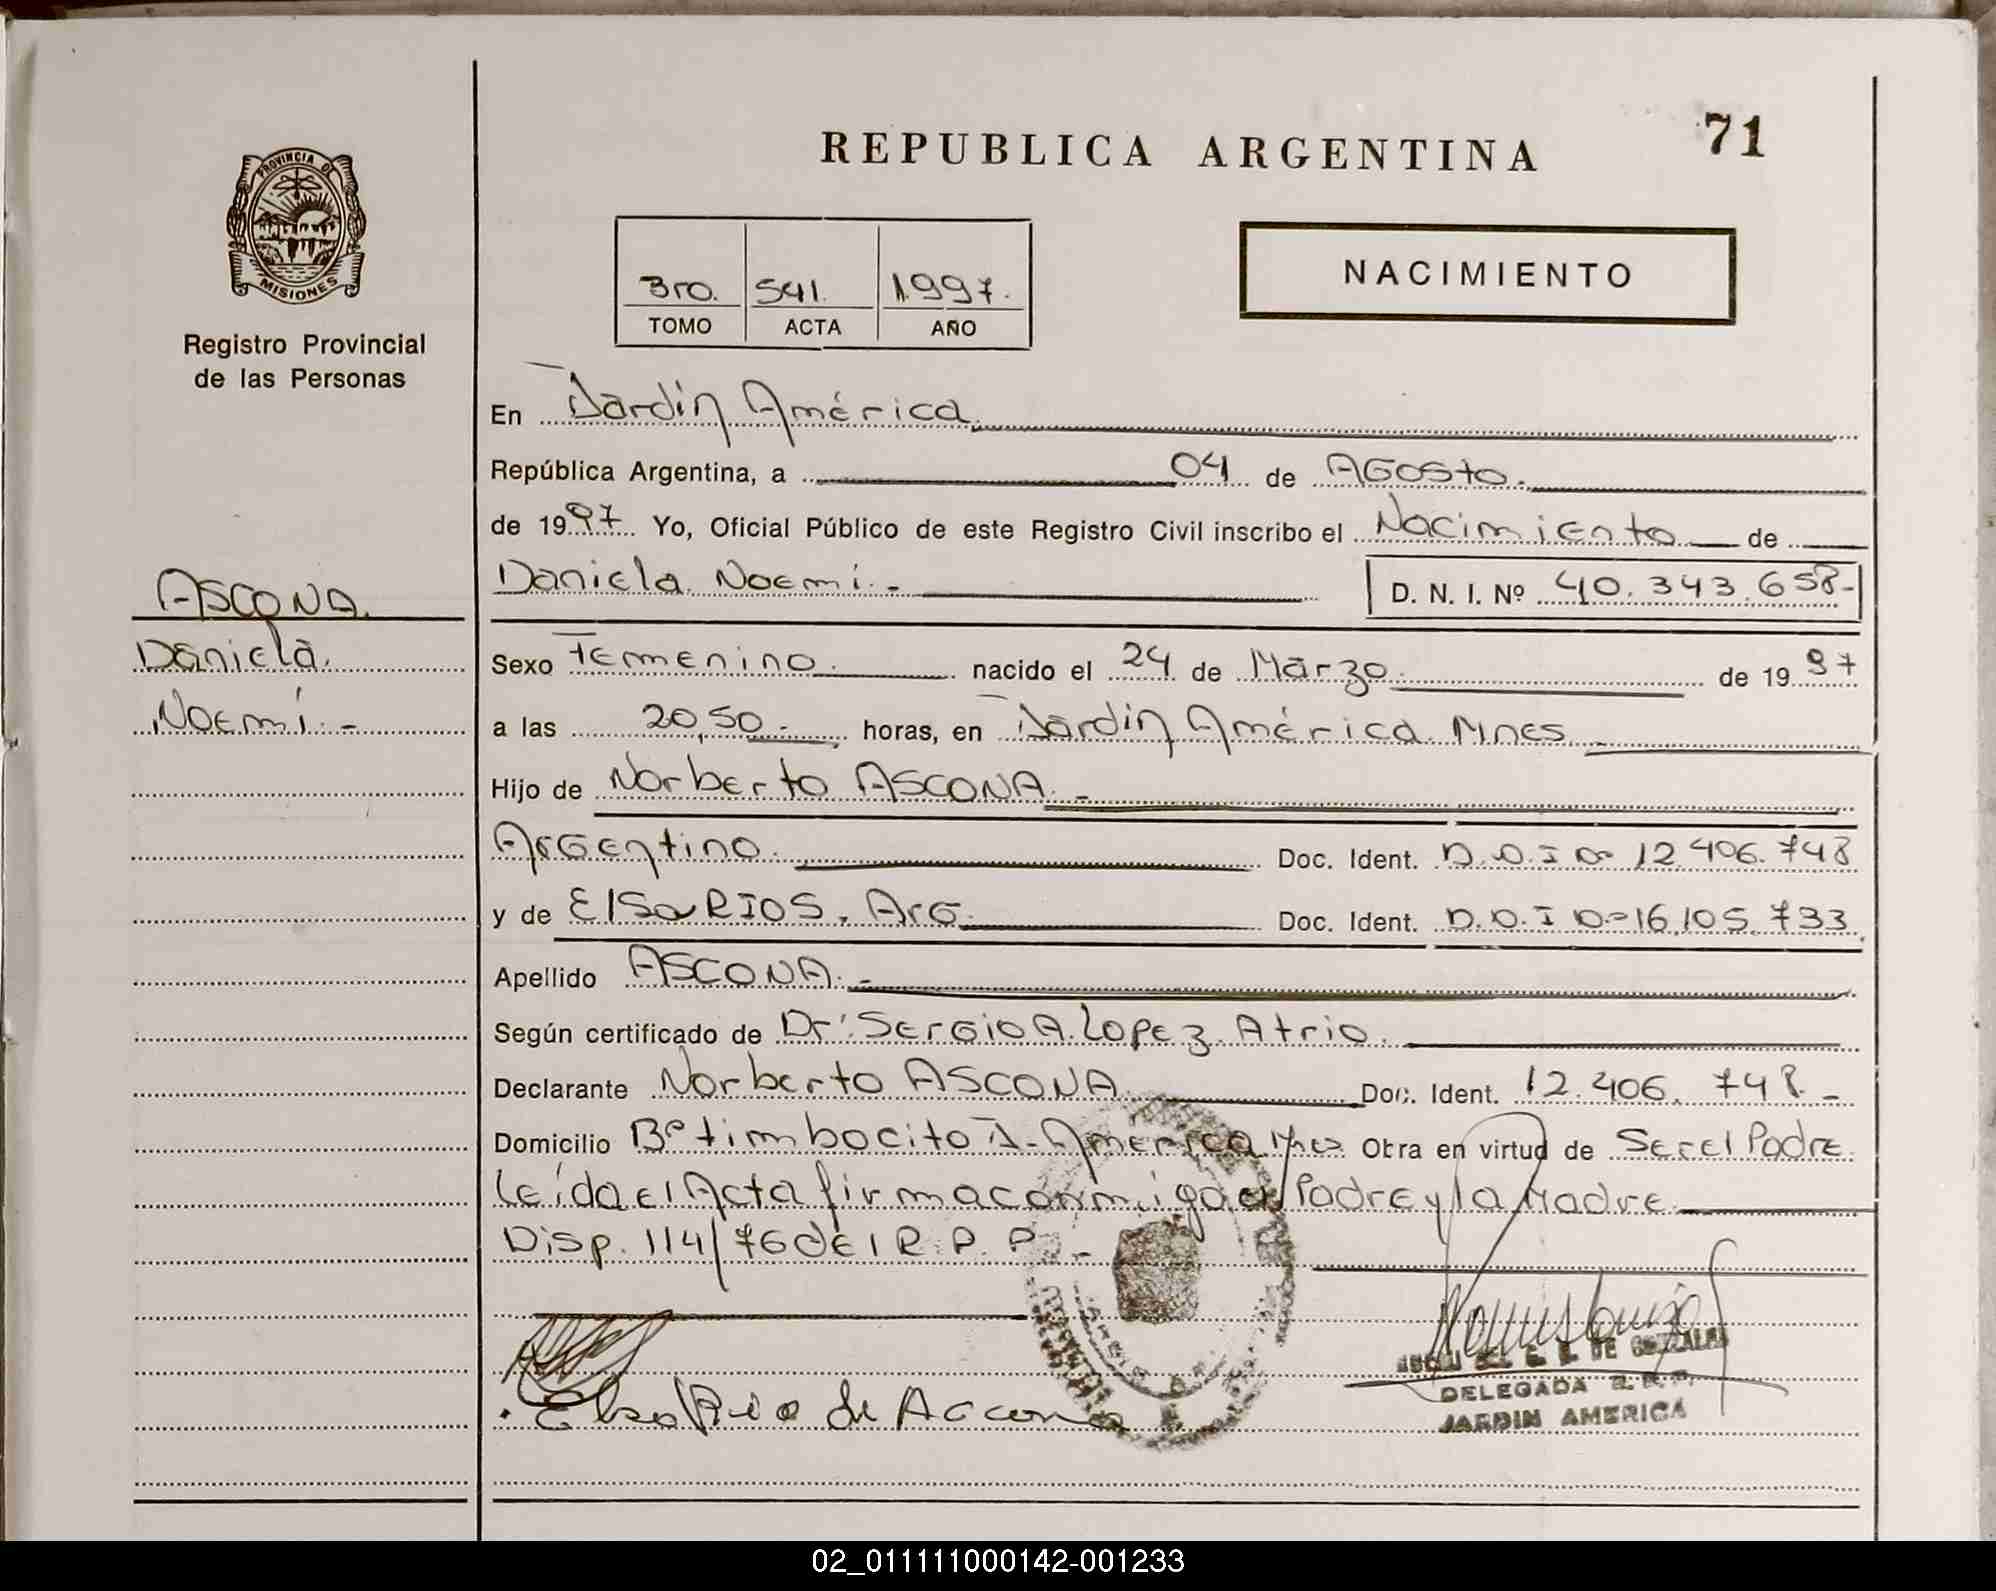 REPUBLICA ARGENTINA
71
PROVINCIA DE
MISIONES
Registro Provincial
de las Personas
3ro. 541. 1997.
TOMO ACTA AÑO
NACIMIENTO
En Jardín América
República Argentina, a 04 de AGOSTO.
de 1997. Yo, Oficial Público de este Registro Civil inscribo el Nacimiento de
Daniela Noemí.- D. N. I. Nº 40.343.658-
ASCONA.
Daniela
Noemí.-
Sexo Femenino. nacido el 24 de Marzo de 1997
a las 20,50.- horas, en Jardín América. Mnes.
Hijo de Norberto ASCONA.-
Argentino. Doc. Ident. D.N.I Nº 12.406.748
y de Elsa RIOS, Arg. Doc. Ident. D.N.I Nº 16.105.733.
Apellido ASCONA.-
Según certificado de Dr. Sergio A. Lopez Atrio.
Declarante Norberto ASCONA. Doc. Ident. 12.406.748.-
Domicilio Bº timbocito J. América Mnes Obra en virtud de Ser el Padre.
Leída el Acta firma conmigo el Padre y la Madre.
Disp. 114/76 del R.P.P.-
Elsa Rio de Ascona
DE GONZALEZ
DELEGADA R.P.P.
JARDIN AMERICA
02_011111000142-001233